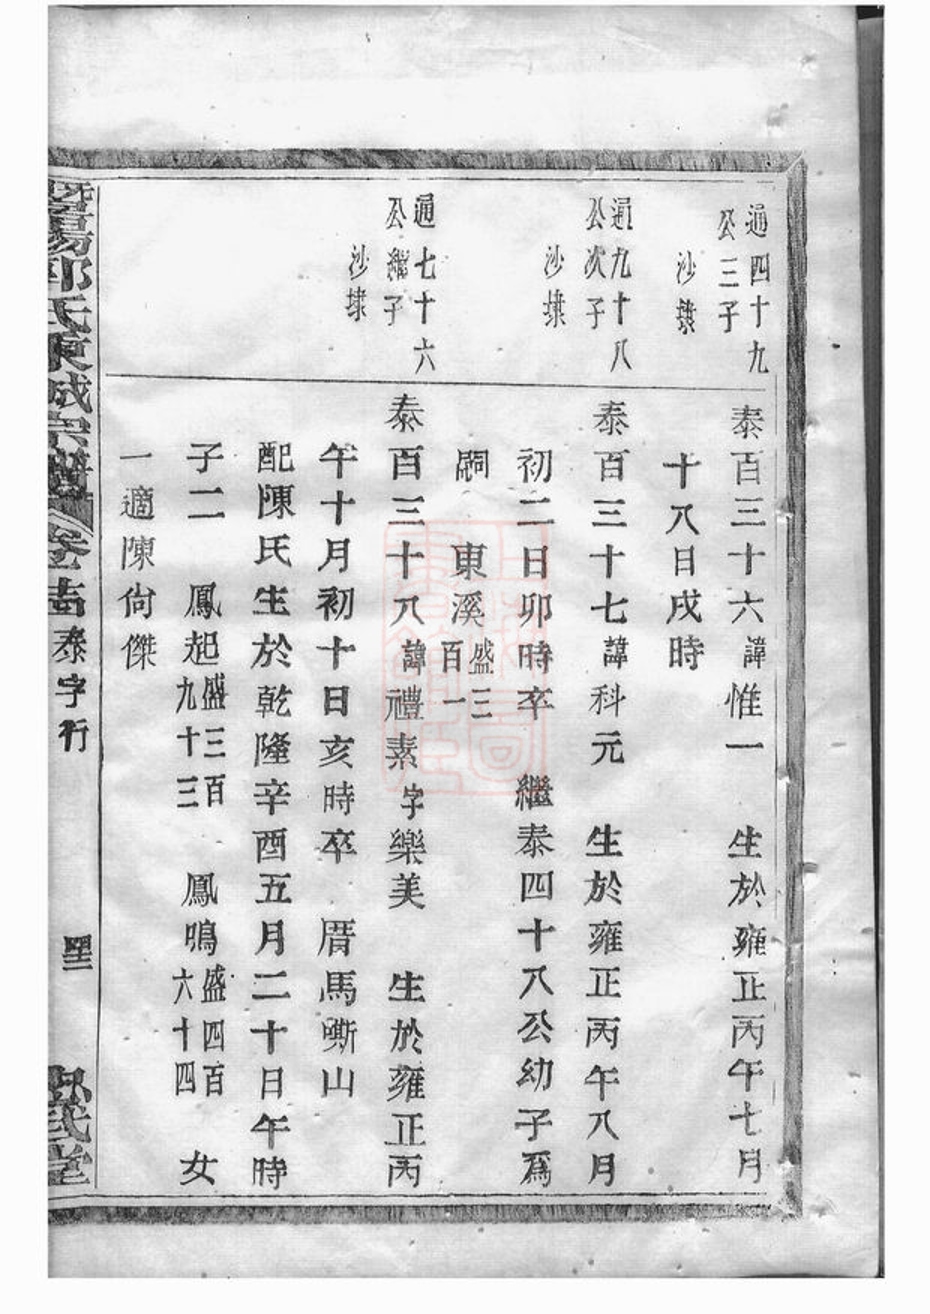 通四十九
公三子
沙埭
泰百三十六諱惟一 生於雍正丙午七月
十八日戌時
通九十八
公次子
沙埭
泰百三十七諱科元 生於雍正丙午八月
初二日卯時卒 繼泰四十八公幼子爲
嗣 東溪盛三百一
通七十六
公繼子
沙埭
泰百三十八諱禮素字樂美 生於雍正丙
午十月初十日亥時卒 厝馬嘶山
配陳氏生於乾隆辛酉五月二十日午時
子二 鳳起盛三百九十三 鳳鳴盛四百六十四 女
一適陳尙傑
暨陽邱氏東城宗譜 卷 泰字行